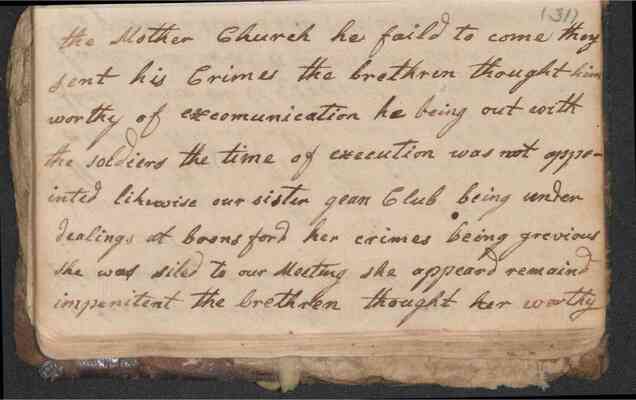 (31)
the Mother Church he faild to come they
sent his Crimes the brethren thought him
worthy of excomunication he being out with
the soldiers the time of execution was not appo-
inted likewise our sister gean Club being under
dealings at boonsford her crimes being grevious
she was sited to our Meeting she appeard remaind
impenitent the brethren thought her worthy